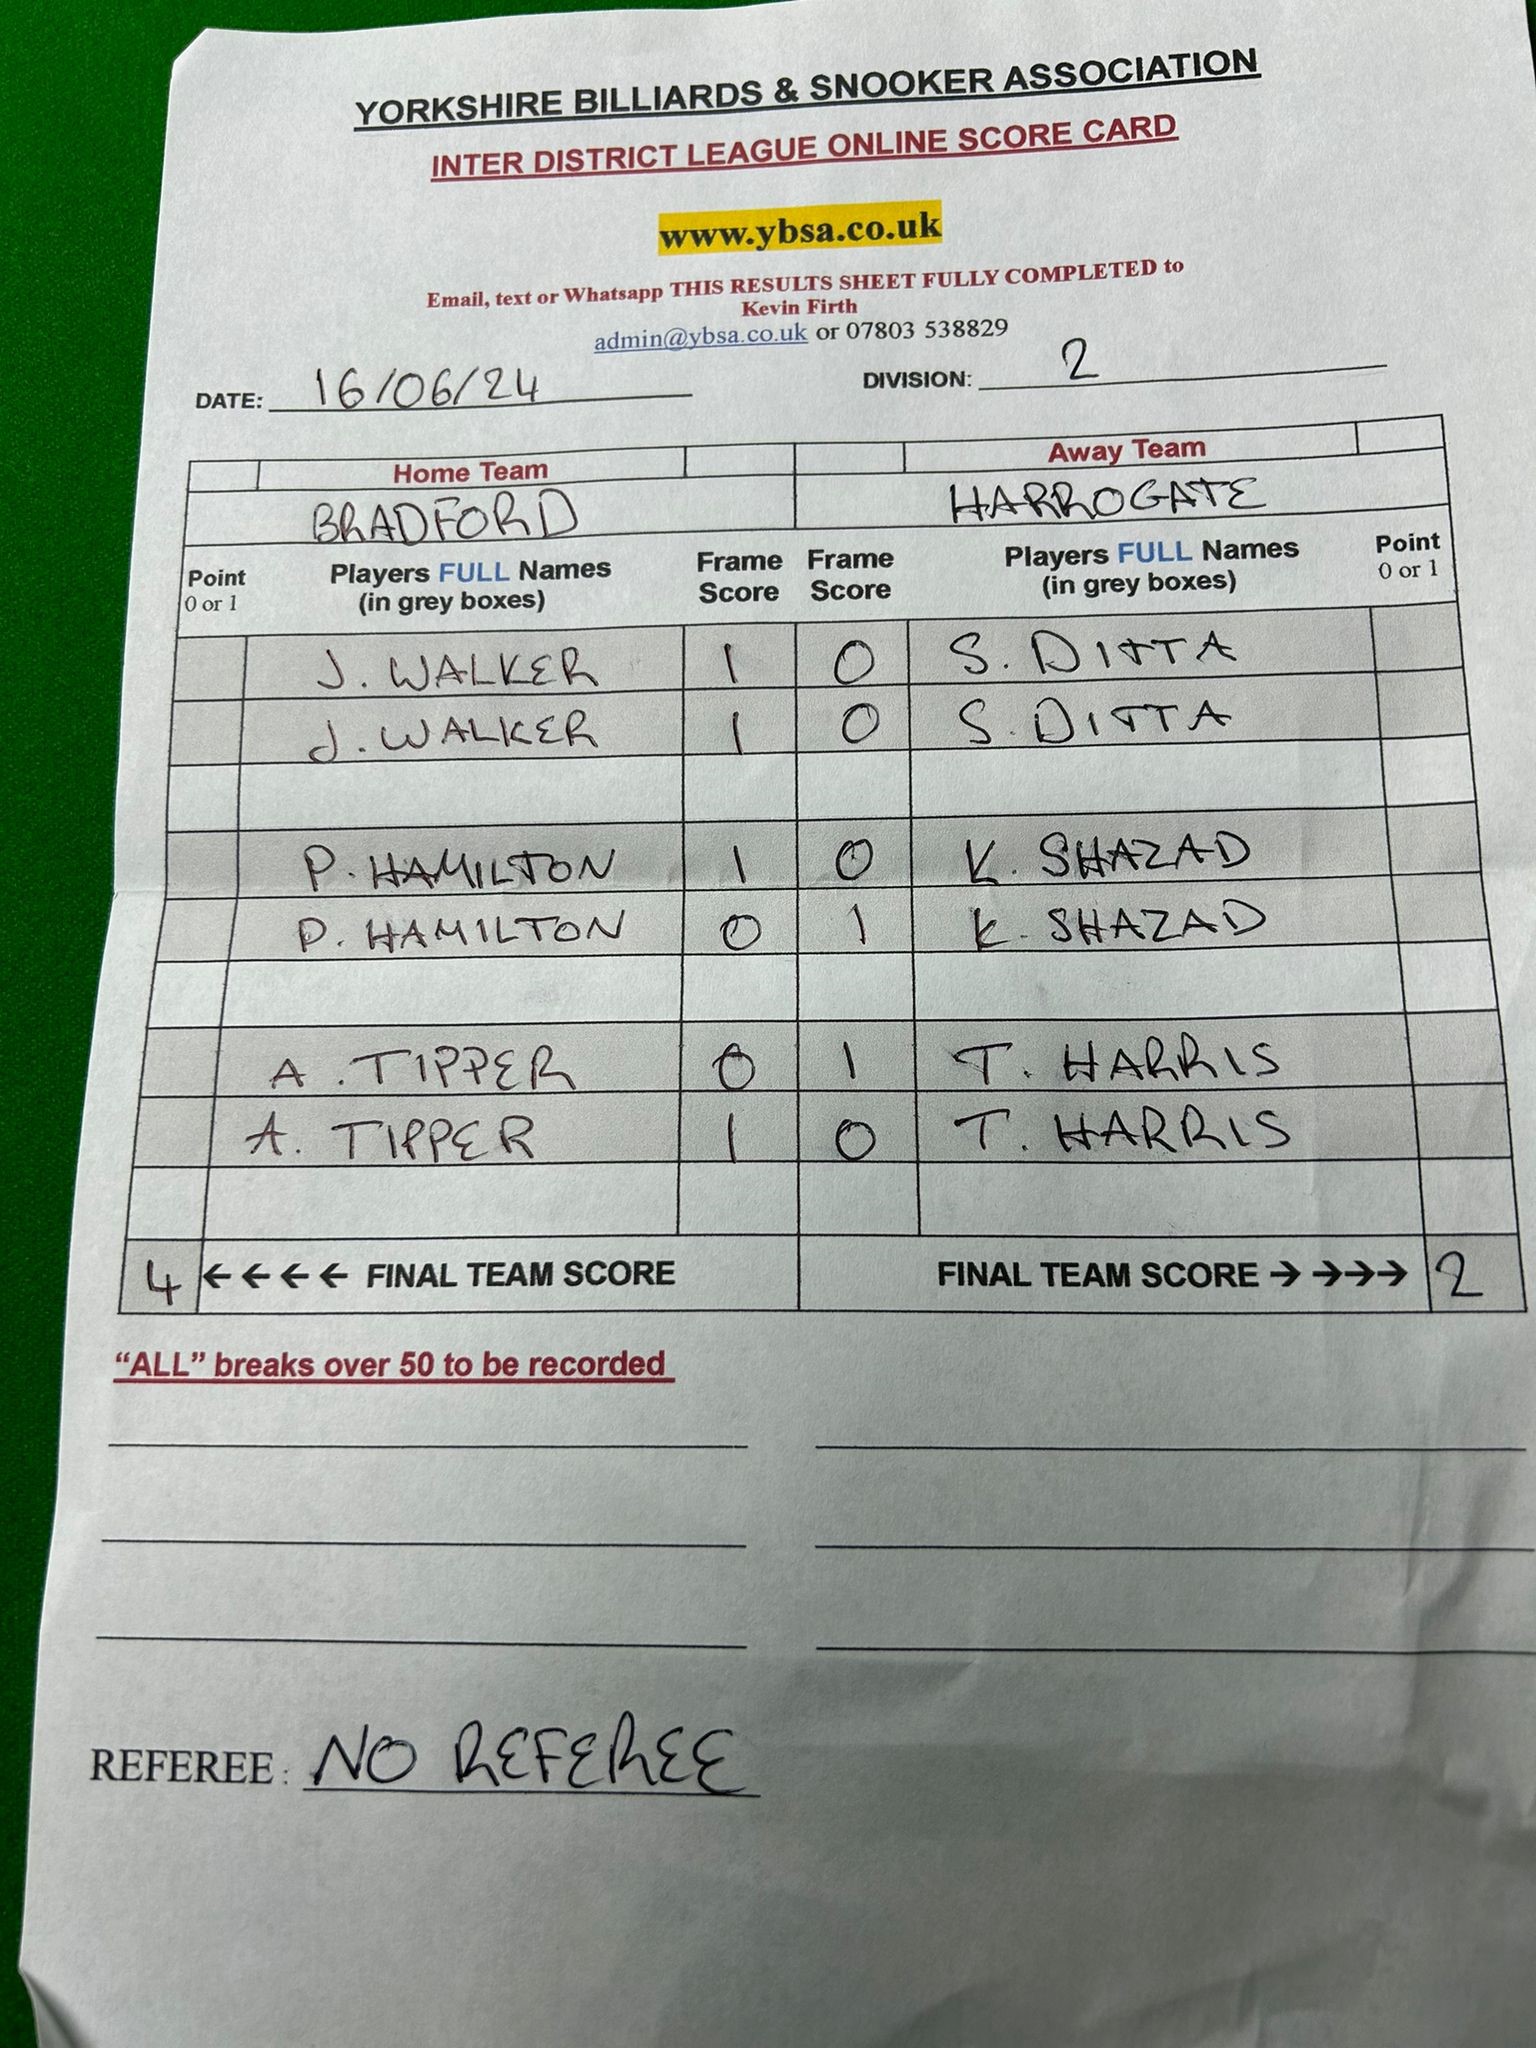 YORKSHIRE BILLIARDS & SNOOKER ASSOCIATION
INTER DISTRICT LEAGUE ONLINE SCORE CARD
www.ybsa.co.uk
Email, text or Whatsapp THIS RESULTS SHEET FULLY COMPLETED to
Kevin Firth
admin@ybsa.co.uk or 07803 538829
DATE: 16/06/24 DIVISION: 2
Home Team Away Team
BRADFORD HARROGATE
Point 0 or 1 Players FULL Names (in grey boxes) Frame Score Frame Score Players FULL Names (in grey boxes) Point 0 or 1
J. WALKER 1 0 S. DITTA
J. WALKER 1 0 S. DITTA
P. HAMILTON 1 0 K. SHAZAD
P. HAMILTON 0 1 K. SHAZAD
A. TIPPER 0 1 T. HARRIS
A. TIPPER 1 0 T. HARRIS
4 ←←←← FINAL TEAM SCORE FINAL TEAM SCORE → →→→ 2
“ALL” breaks over 50 to be recorded
REFEREE: NO REFEREE